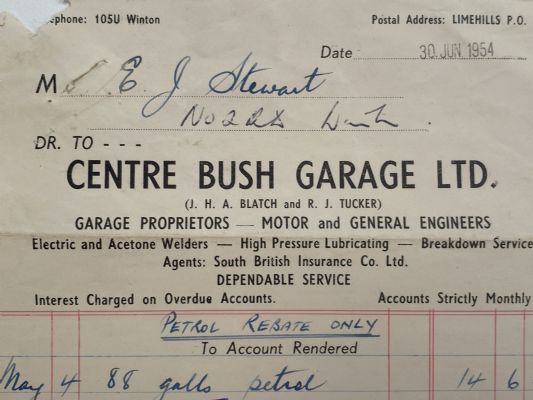 ephone: 105U Winton
Postal Address: LIMEHILLS P.O.
Date 30 JUN 1954
M E J Stewart
No 2
DR. TO - - -
CENTRE BUSH GARAGE LTD.
(J. H. A. BLATCH and R. J. TUCKER)
GARAGE PROPRIETORS — MOTOR and GENERAL ENGINEERS
Electric and Acetone Welders — High Pressure Lubricating — Breakdown Service
Agents: South British Insurance Co. Ltd.
DEPENDABLE SERVICE
Interest Charged on Overdue Accounts. Accounts Strictly Monthly
PETROL REBATE ONLY
To Account Rendered
May 4 88 galls petrol 14 6